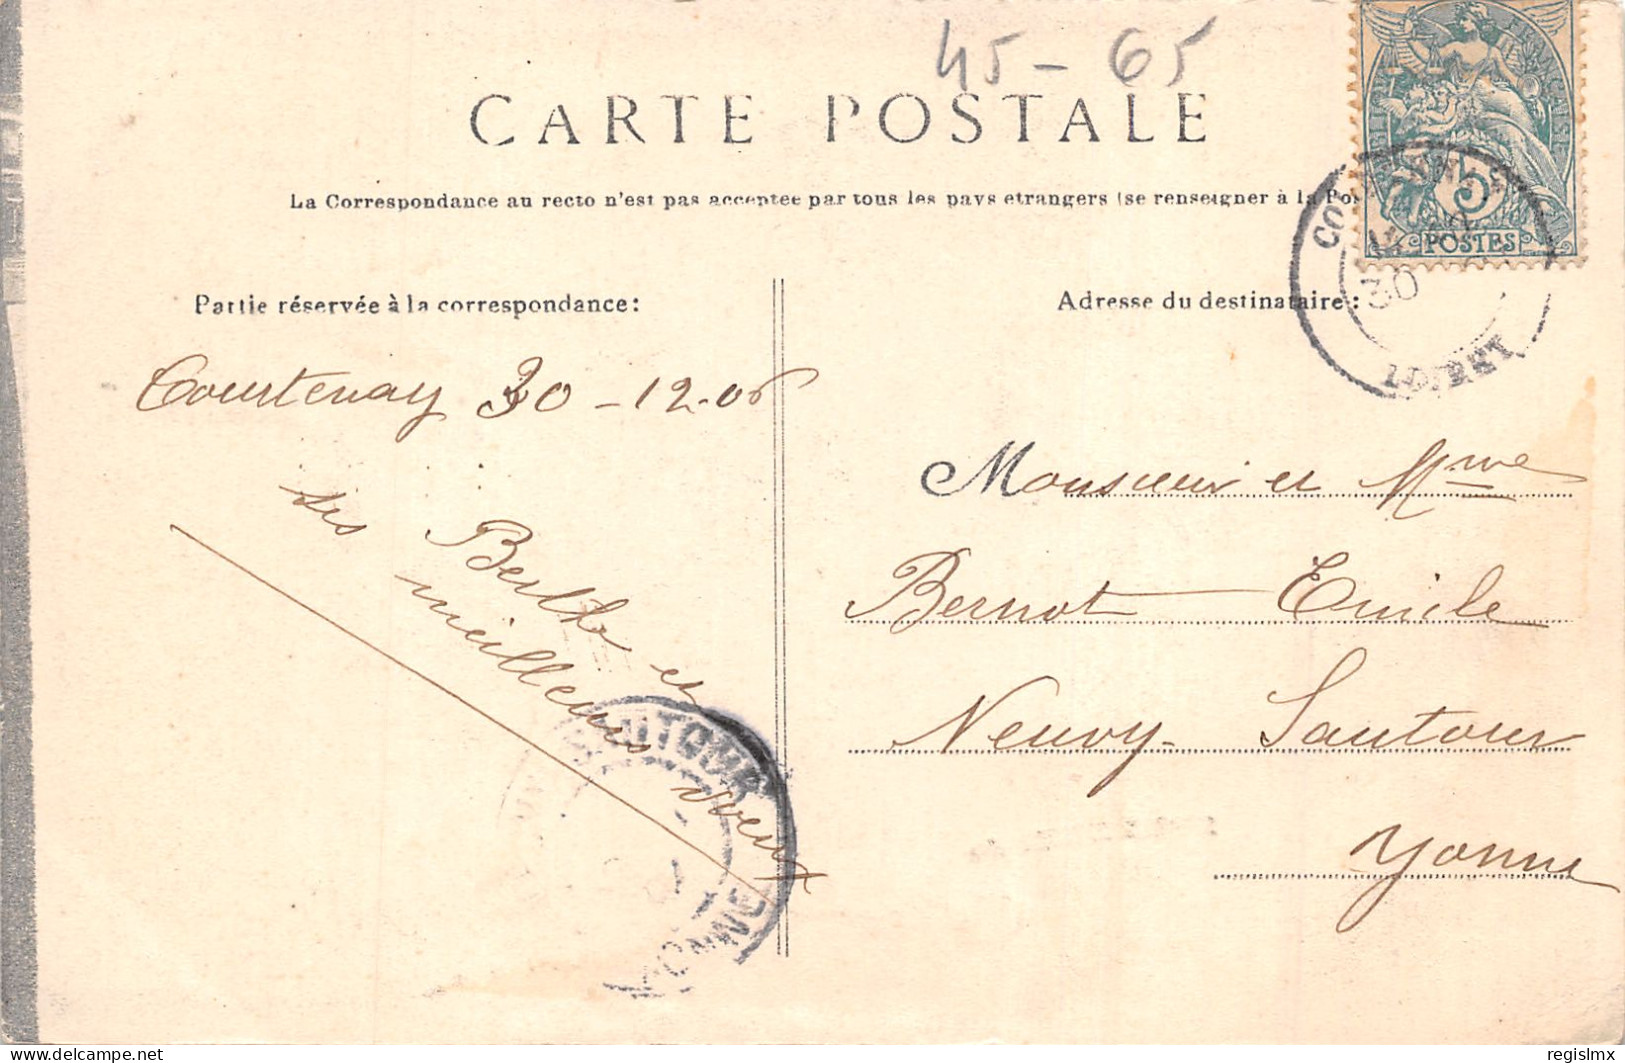 45-65
CARTE POSTALE
La Correspondance au recto n'est pas acceptée par tous les pays etrangers (se renseigner à la Pos
RÉPUBLIQUE FRANÇAISE
5
POSTES
COURTENAY
30
LOIRET
Partie réservée à la correspondance:
Adresse du destinataire:
Courtenay 30-12-06
Berthe et
ses meilleurs voeux
Monsieur et Mme
Bernot Emile
Neuvy-Sautour
Yonne
SAUTOUR
YONNE
delcampe.net
regislmx